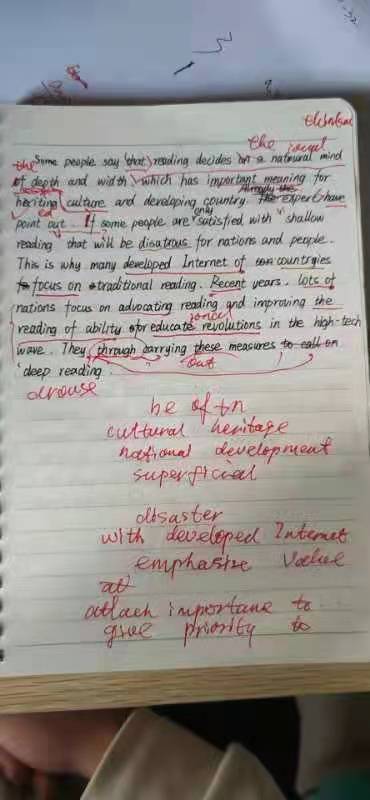 the
Some people say that reading decides on a natural mind
of depth and width, which has important meaning for
heriting culture and developing country. The expert have
Already the
point out. If some people are satisfied with shallow
only
reading that will be disatrous for nations and people.
This is why many developed Internet of countrgies
focus on traditional reading. Recent years. lots of
nations focus on advocating reading and improving the
reading of ability of educate revolutions in the high-tech
wave. They through carrying these measures to call on
out
deep reading.
arouse
be of + n
cultural heritage
national development
superficial
disaster
with developed Internet
emphasize value
at
attach importane to
give priority to